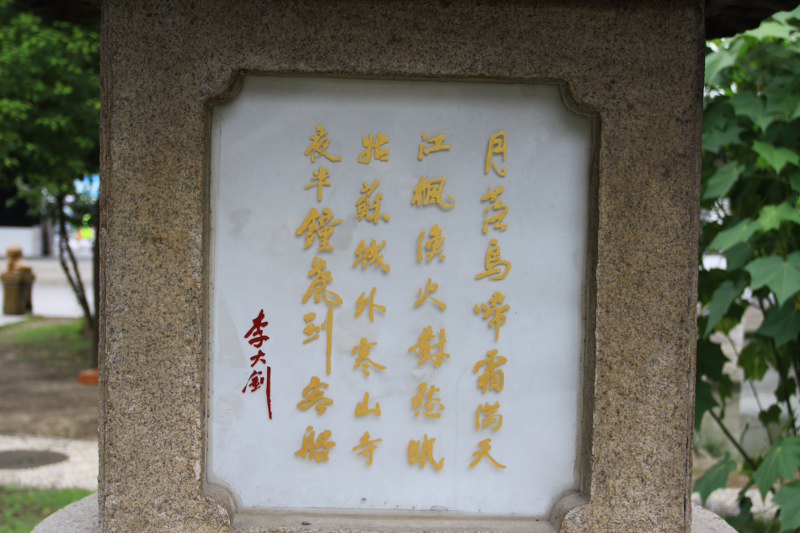 月落烏啼霜滿天
江楓漁火對愁眠
姑蘇城外寒山寺
夜半鐘聲到客船
李大釗